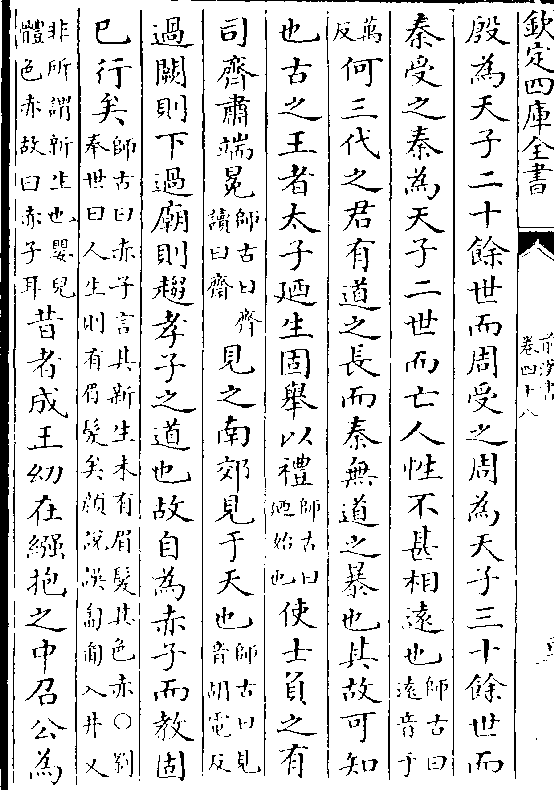 欽定四庫全書
前漢書
卷四十八
殷為天子二十餘世而周受之周為天子三十餘世而
秦受之秦為天子二世而亡人性不甚相遠也師古曰遠音于
萬反何三代之君有道之長而秦無道之暴也其故可知
也古之王者太子迺生固舉以禮師古曰迺始也使士負之有
司齊肅端冕師古曰齊讀曰齋見之南郊見于天也師古曰見音胡電反
過闕則下過廟則趨孝子之道也故自為赤子而教固
已行矣師古曰赤子言其新生未有眉髮其色赤○劉奉世曰人生則有眉髮矣顔說誤匍匐入井又
非所謂新生也嬰兒體色赤故曰赤子耳昔者成王幼在繈抱之中召公為